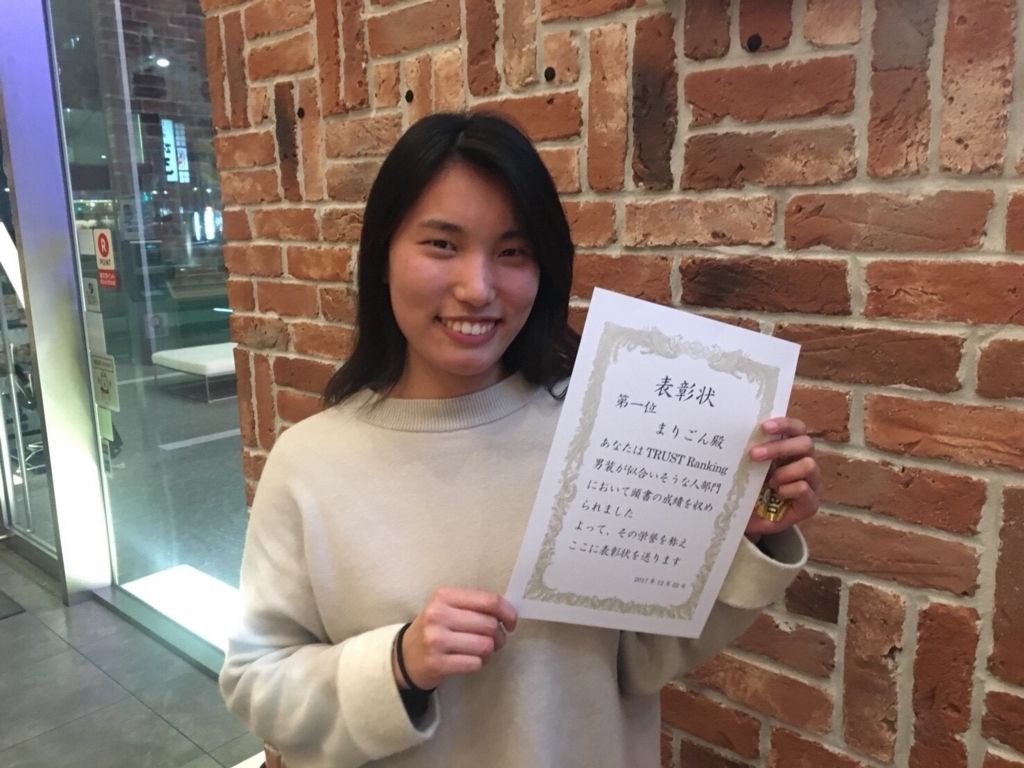 表彰状
第一位
まりごん殿
あなたは TRUST Ranking
男装が似合いそうな人部門
において頭書の成績を収め
られました
よって、その栄誉を称え
ここに表彰状を送ります
2017年12月02日
R
POINT